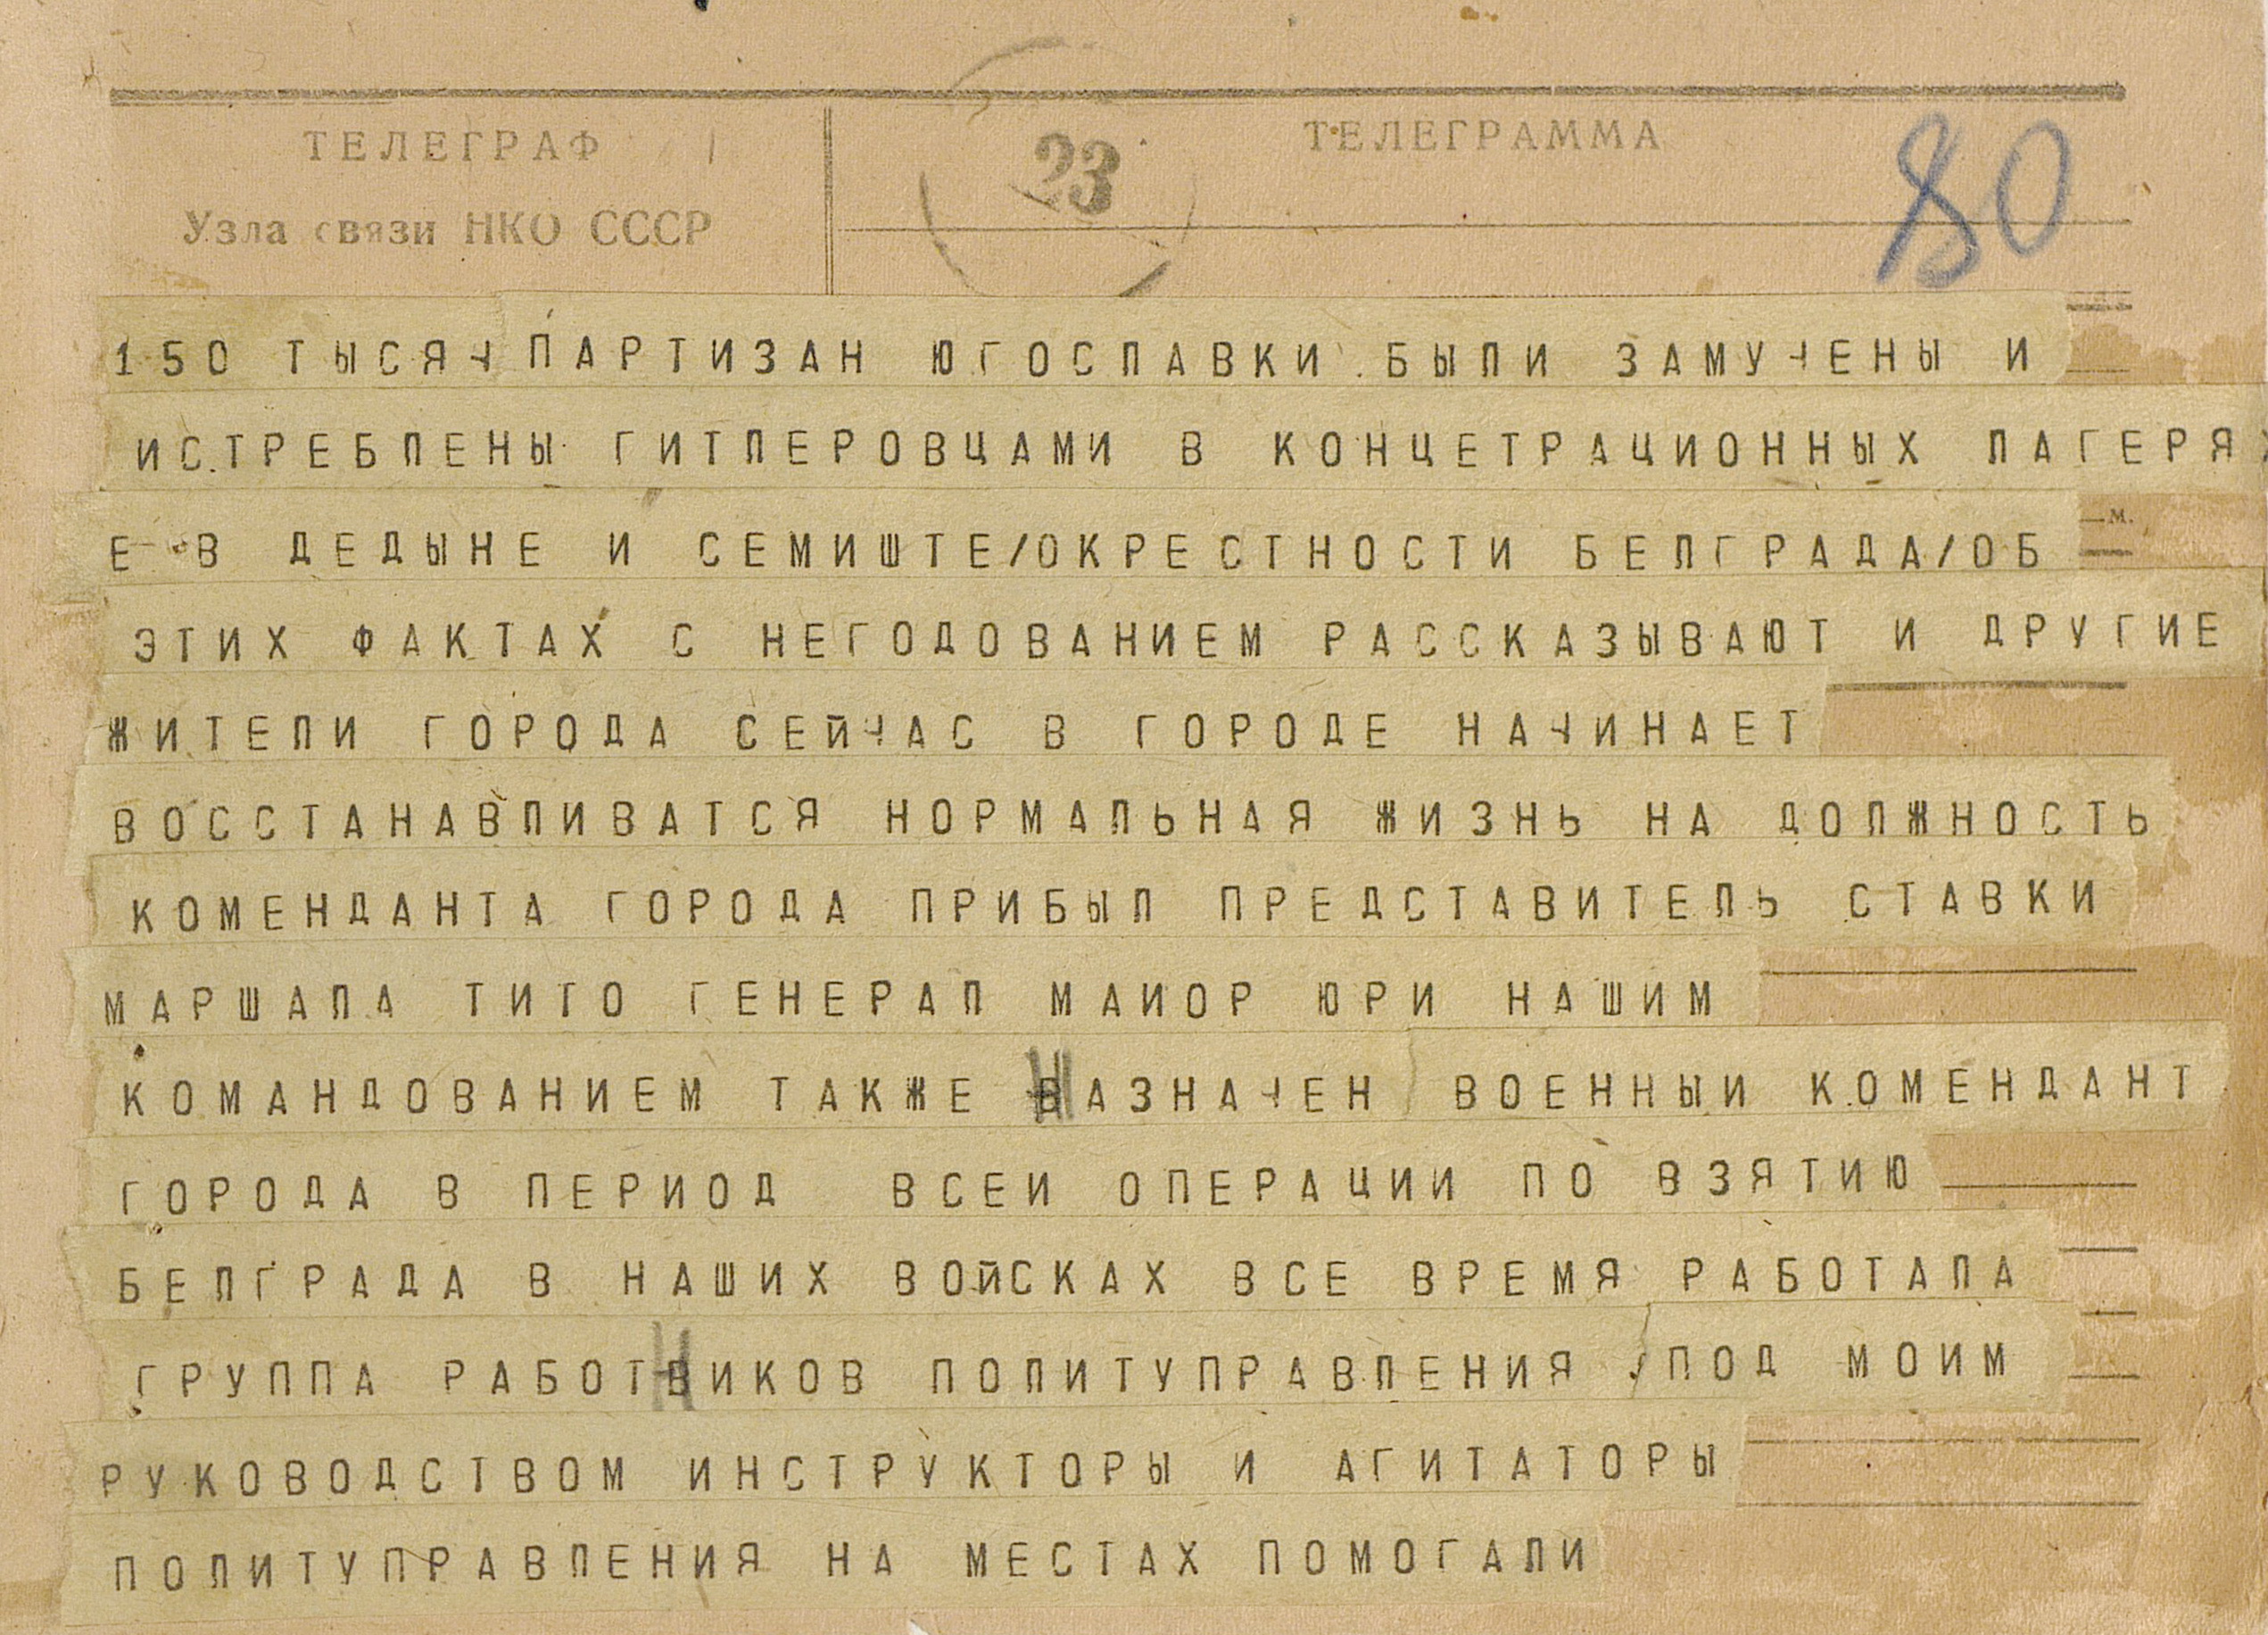 ТЕЛЕГРАФ
Узла связи НКО СССР
23
ТЕЛЕГРАММА
80
150 ТЫСЯЧ ПАРТИЗАН ЮГОСЛАВКИ БЫЛИ ЗАМУЧЕНЫ И
ИСТРЕБЛЕНЫ ГИТЛЕРОВЦАМИ В КОНЦЕТРАЦИОННЫХ ЛАГЕРЯХ
Е В ДЕДЫНЕ И СЕМИШТЕ/ОКРЕСТНОСТИ БЕЛГРАДА/ОБ
ЭТИХ ФАКТАХ С НЕГОДОВАНИЕМ РАССКАЗЫВАЮТ И ДРУГИЕ
ЖИТЕЛИ ГОРОДА СЕЙЧАС В ГОРОДЕ НАЧИНАЕТ
ВОССТАНАВЛИВАТСЯ НОРМАЛЬНАЯ ЖИЗНЬ НА ДОЛЖНОСТЬ
КОМЕНДАНТА ГОРОДА ПРИБЫЛ ПРЕДСТАВИТЕЛЬ СТАВКИ
МАРШАЛА ТИТО ГЕНЕРАЛ МАИОР ЮРИ НАШИМ
КОМАНДОВАНИЕМ ТАКЖЕ НАЗНАЧЕН ВОЕННЫИ КОМЕНДАНТ
ГОРОДА В ПЕРИОД ВСЕИ ОПЕРАЦИИ ПО ВЗЯТИЮ
БЕЛГРАДА В НАШИХ ВОЙСКАХ ВСЕ ВРЕМЯ РАБОТАЛА
ГРУППА РАБОТНИКОВ ПОЛИТУПРАВЛЕНИЯ ПОД МОИМ
РУКОВОДСТВОМ ИНСТРУКТОРЫ И АГИТАТОРЫ
ПОЛИТУПРАВЛЕНИЯ НА МЕСТАХ ПОМОГАЛИ